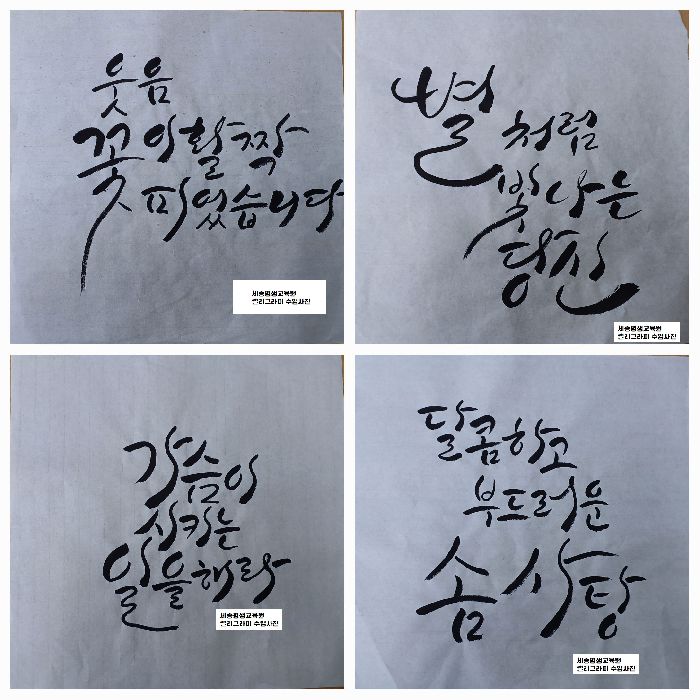 웃음
꽃이활짝
피었습니다
세종평생교육원
캘리그라피 수업사진
별처럼
빛나는
당신
세종평생교육원
캘리그라피 수업사진
가슴이
시키는
일을해라
세종평생교육원
캘리그라피 수업사진
달콤하고
부드러운
솜사탕
세종평생교육원
캘리그라피 수업사진